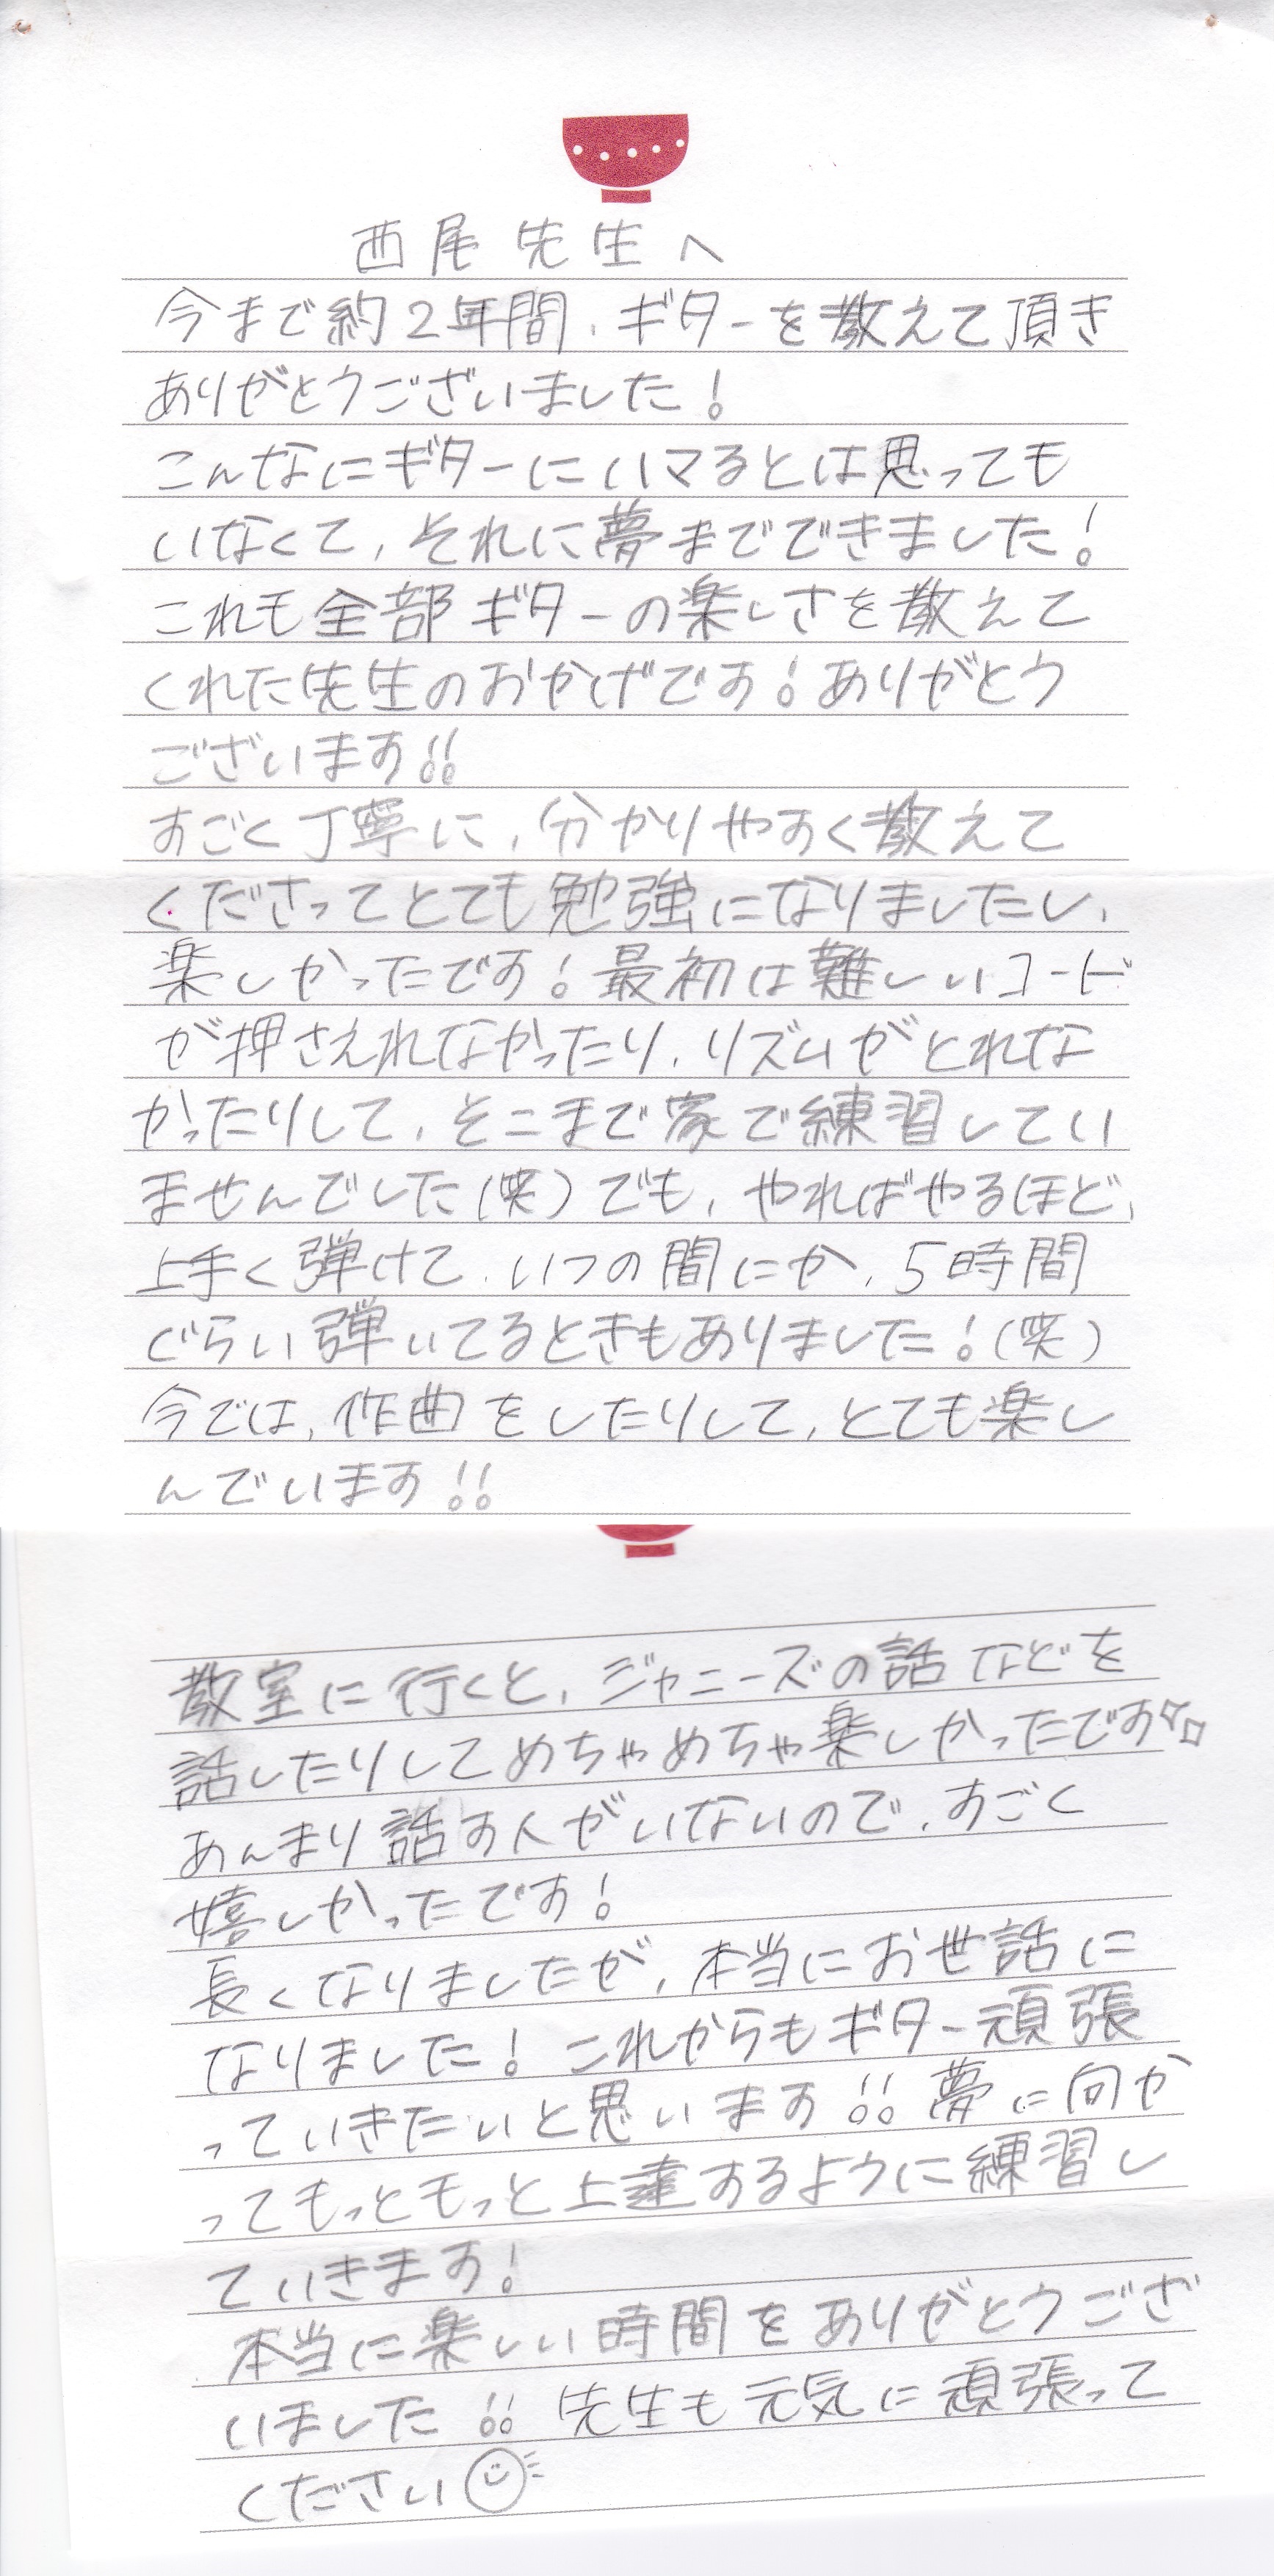 西尾先生へ
今まで約2年間、ギターを教えて頂き
ありがとうございました!
こんなにギターにハマるとは思っても
いなくて、それに夢までできました!
これも全部ギターの楽しさを教えて
くれた先生のおかげです!ありがとう
ございます!!
すごく丁寧に、分かりやすく教えて
くださってとても勉強になりましたし、
楽しかったです!最初は難しいコード
が押さえれなかったり、リズムがとれな
かったりして、そこまで家で練習してい
ませんでした(笑)でも、やればやるほど、
上手く弾けて、いつの間にか、5時間
ぐらい弾いてるときもありました!(笑)
今では、作曲をしたりして、とても楽し
んでいます!!
教室に行くと、ジャニーズの話などを
話したりしてめちゃめちゃ楽しかったです
あんまり話す人がいないので、すごく
嬉しかったです!
長くなりましたが、本当にお世話に
なりました!これからもギター頑張
っていきたいと思います!!夢に向か
ってもっともっと上達するように練習し
ていきます!
本当に楽しい時間をありがとうござ
いました!!先生も元気に頑張って
ください